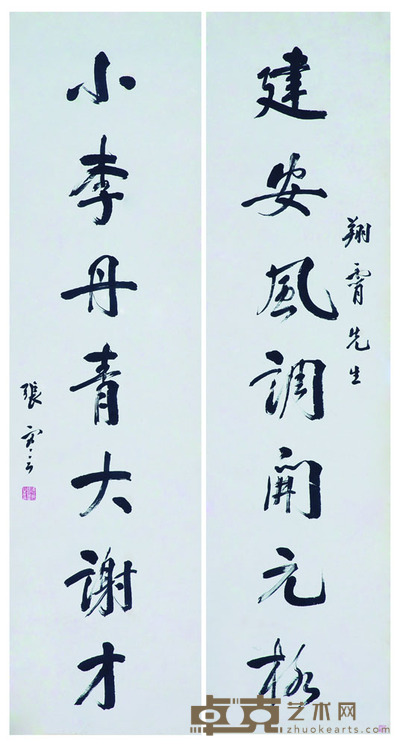 翔霄先生
建安風調開元格
小李丹青大謝才
張
卓克艺术网
zhuokearts.com